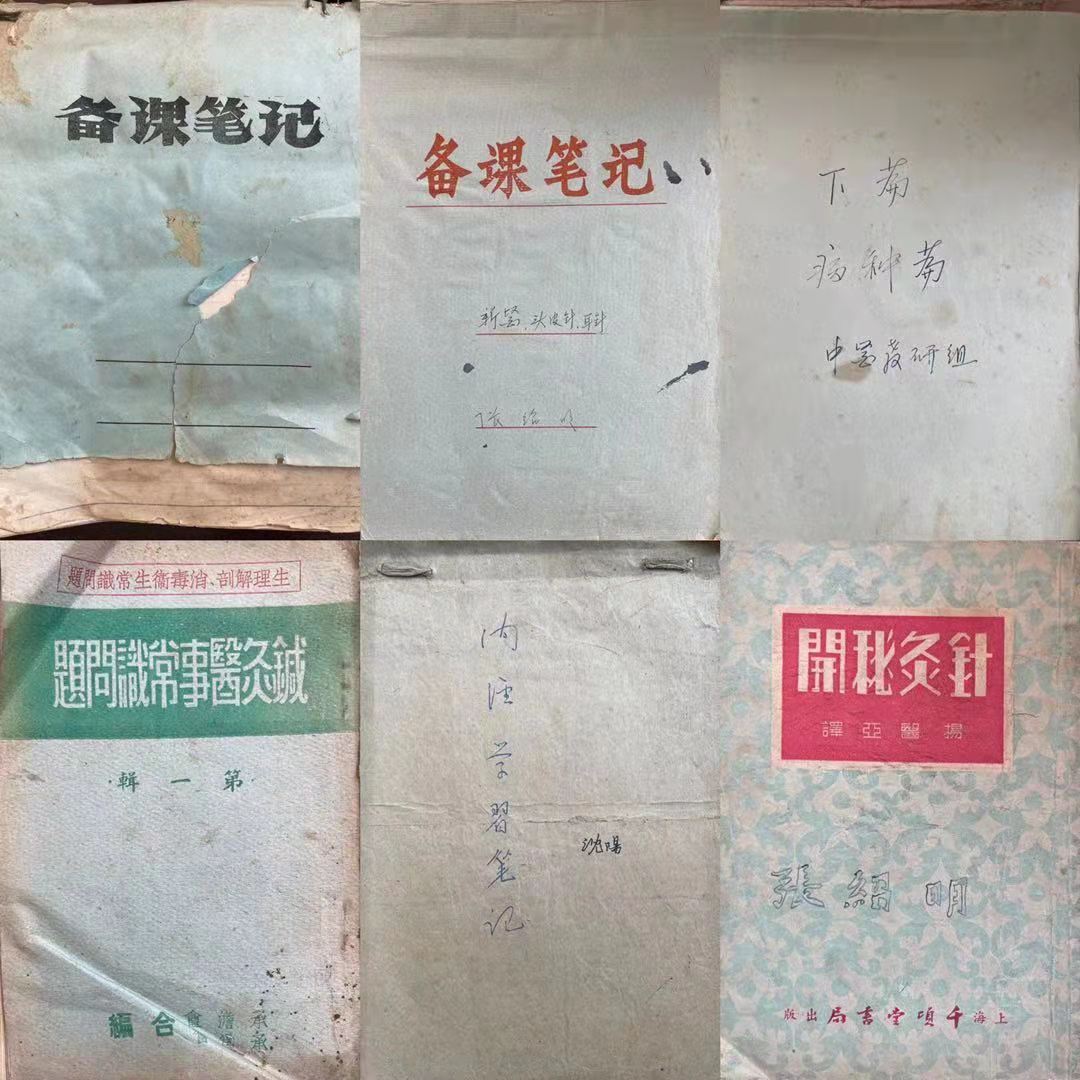 备课笔记
备课笔记
新医，头皮针，耳针
张绍明
下篇
病种篇
中医教研组
生理解剖、消毒衞生常識問題
鍼灸醫事常識問題
第一輯
合編
内经学習笔记
沈陽
針灸秘開
楊醫亞譯
張紹明
上海千頃堂書局出版